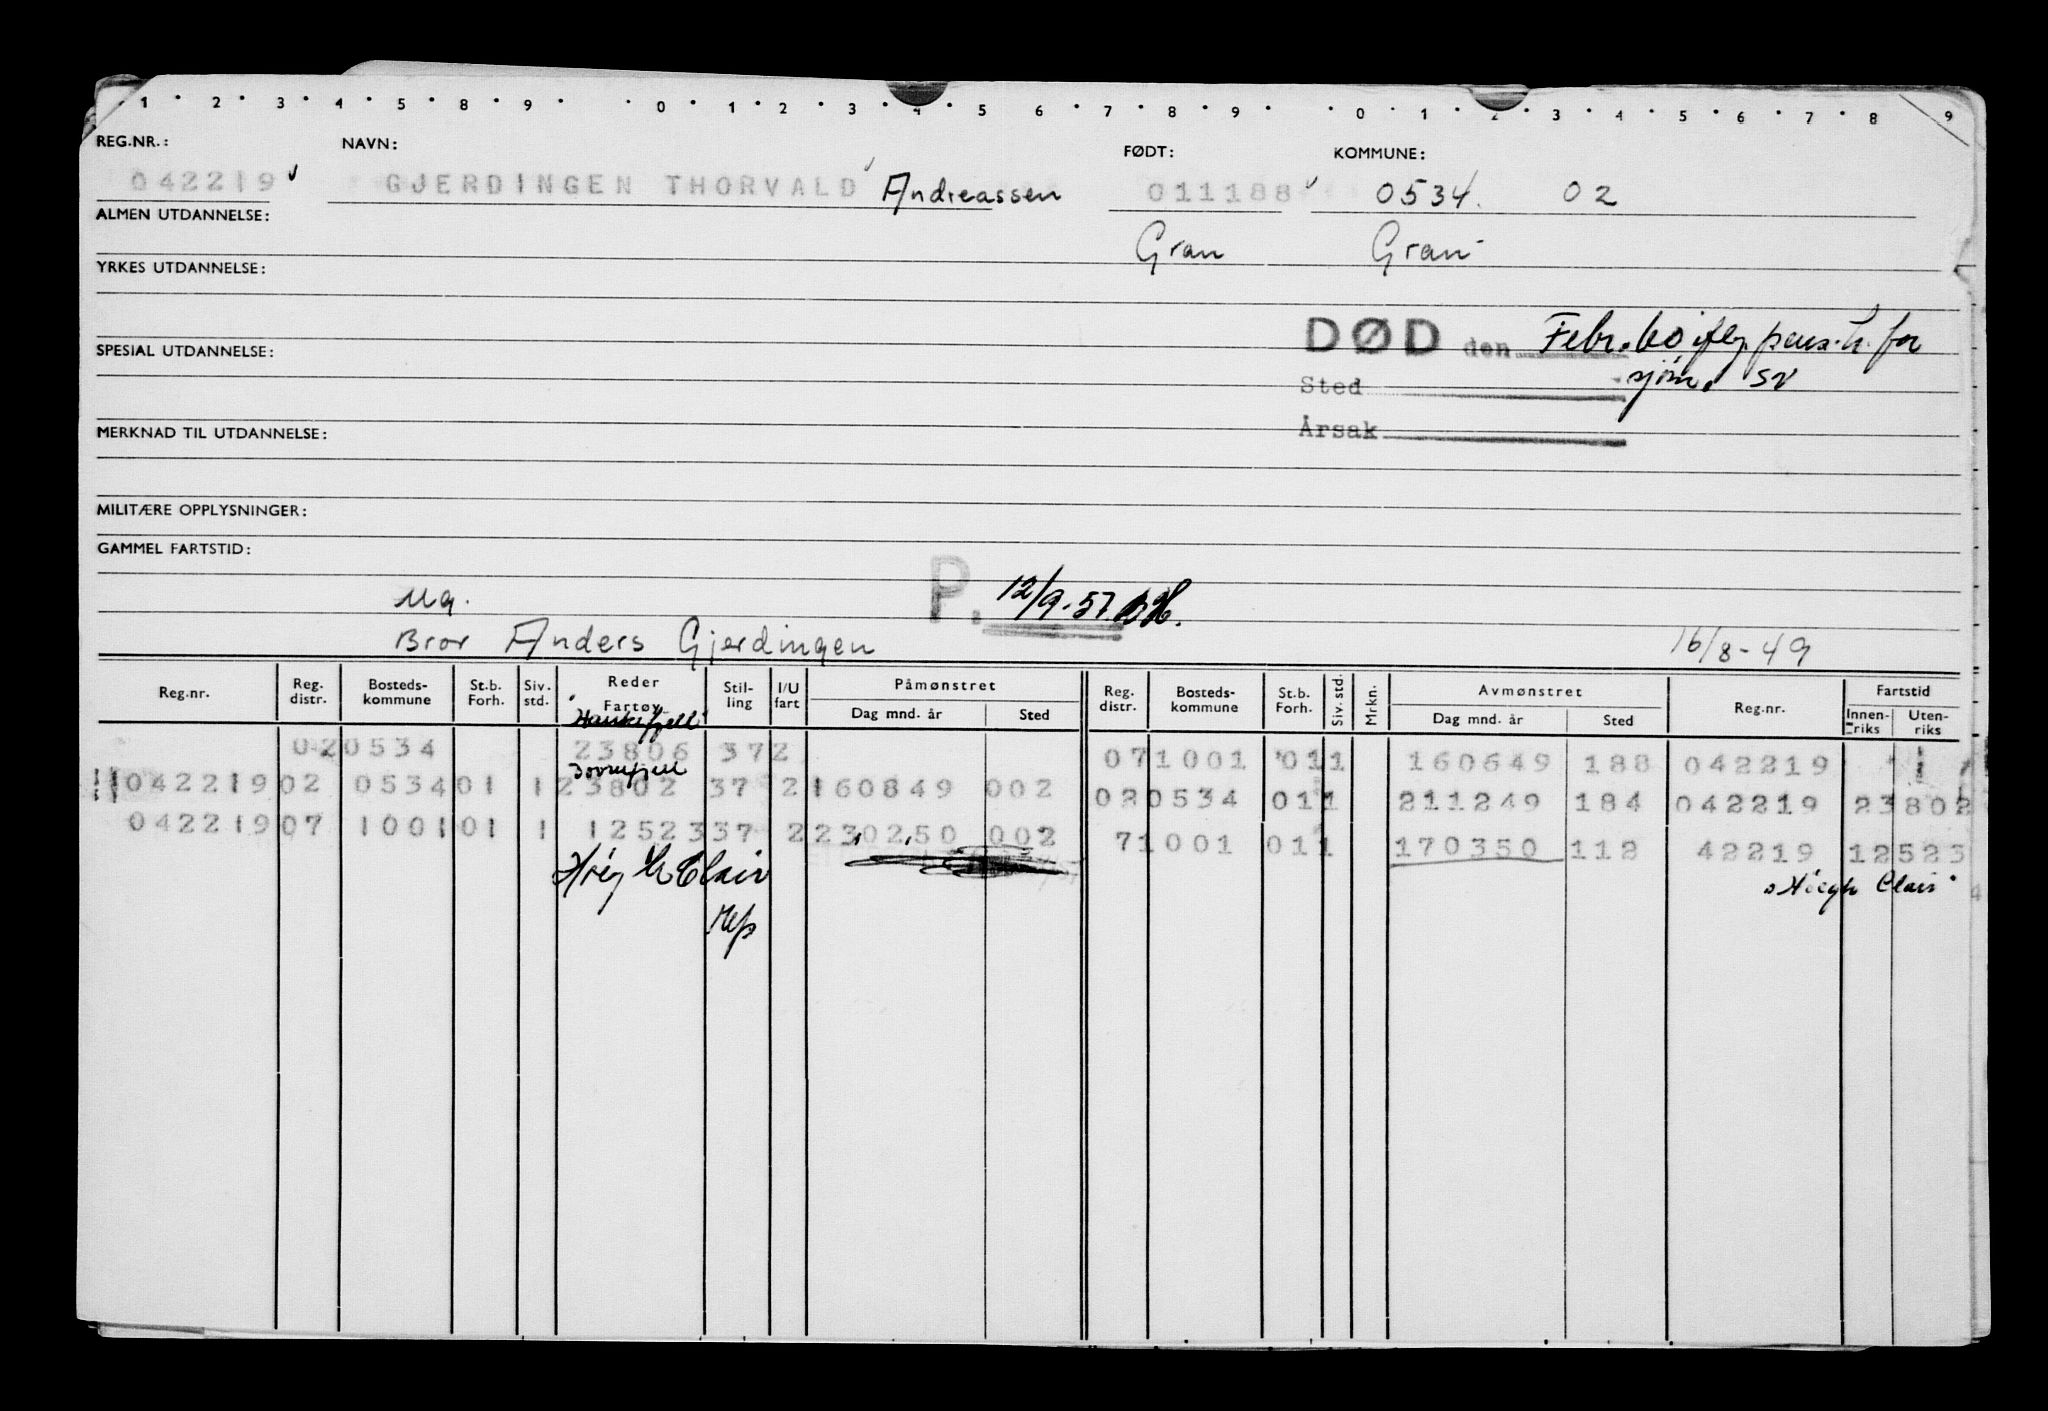 1 2 3 4 5 8 9 0 1 2 3 4 5 6 7 8 9 0 1 2 3 4 5 6 7 8 9
REG.NR.: NAVN: FØDT: KOMMUNE:
042219 GJERDINGEN THORVALD Andreassen 011188 0534. 02
ALMEN UTDANNELSE:
Gran Gran
YRKES UTDANNELSE:
DØD den Febr. 60 iflg. pens.tr. for
SPESIAL UTDANNELSE:
Sted sjøm. SV
Årsak
MERKNAD TIL UTDANNELSE:
MILITÆRE OPPLYSNINGER:
GAMMEL FARTSTID:
P. 12/9-57
Ug.
Bror Anders Gjerdingen 16/8-49
Reg.nr. Reg. distr. Bosteds- kommune St.b. Forh. Siv. std. Reder Fartøy Stil- ling I/U fart Påmønstret Dag mnd. år Sted Reg. distr. Bosteds- kommune St.b. Forh. Siv. std. Mrkn. Avmønstret Dag mnd. år Sted Reg.nr. Fartstid Innen- riks Uten- riks
"Haukefjell"
020534 23806 372 071001 011 160649 188 042219 1
Dovrefjell
042219 02 0534 01 1 23802 37 2 160849 002 02 0534 01 1 211249 184 042219 23802
042219 07 1001 01 1 12523 37 2 230250 002 7 1001 01 1 170350 112 42219 12523
Høegh Clair "Høegh Clair"